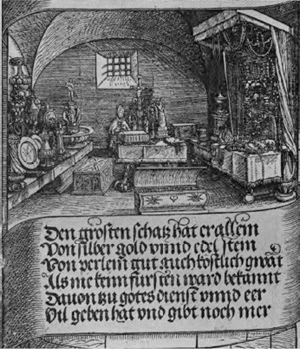 Den grösten schatz hat er allein
Von silber gold vnnd edel stein
Von perlein gut auch köstlich gwāt
Als nie keim fürsten ward bekannt
Dauon tzu gotes dienst vnnd eer
Vil geben hat vnd gibt noch mer